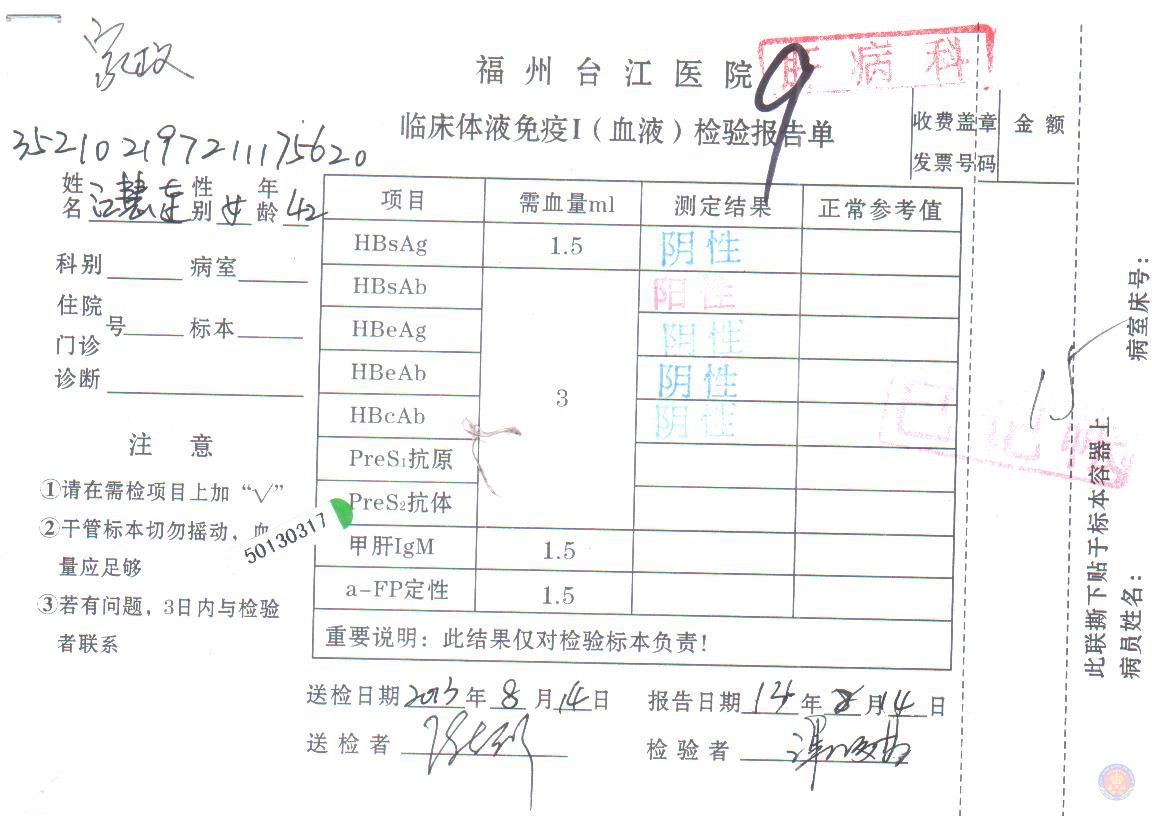 家政
福州台江医院
肝病科
9
临床体液免疫I（血液）检验报告单
收费盖章 金额
发票号码
352102197211175620
姓名 江慧 性别 女 年龄 42
科别 病室
住院
门诊 号 标本
诊断
项目 需血量ml 测定结果 正常参考值
HBsAg 1.5 阴性
HBsAb 3 阳性
HBeAg 阴性
HBeAb 阴性
HBcAb 阴性
PreS₁抗原
PreS₂抗体
甲肝IgM 1.5
a-FP定性 1.5
重要说明：此结果仅对检验标本负责！
注 意
①请在需检项目上加“√”
②干管标本切勿摇动，血
量应足够
③若有问题，3日内与检验
者联系
50130317
送检日期2013年8月14日 报告日期13年8月14日
送检者 检验者
15
此联撕下贴于标本容器上
病员姓名： 病室床号：